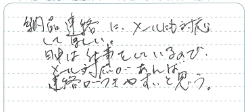 納品連絡に、メールにも対応
してほしい。
日中は仕事をしているので、
メール対応があれば
連絡がつきやすいと思う。